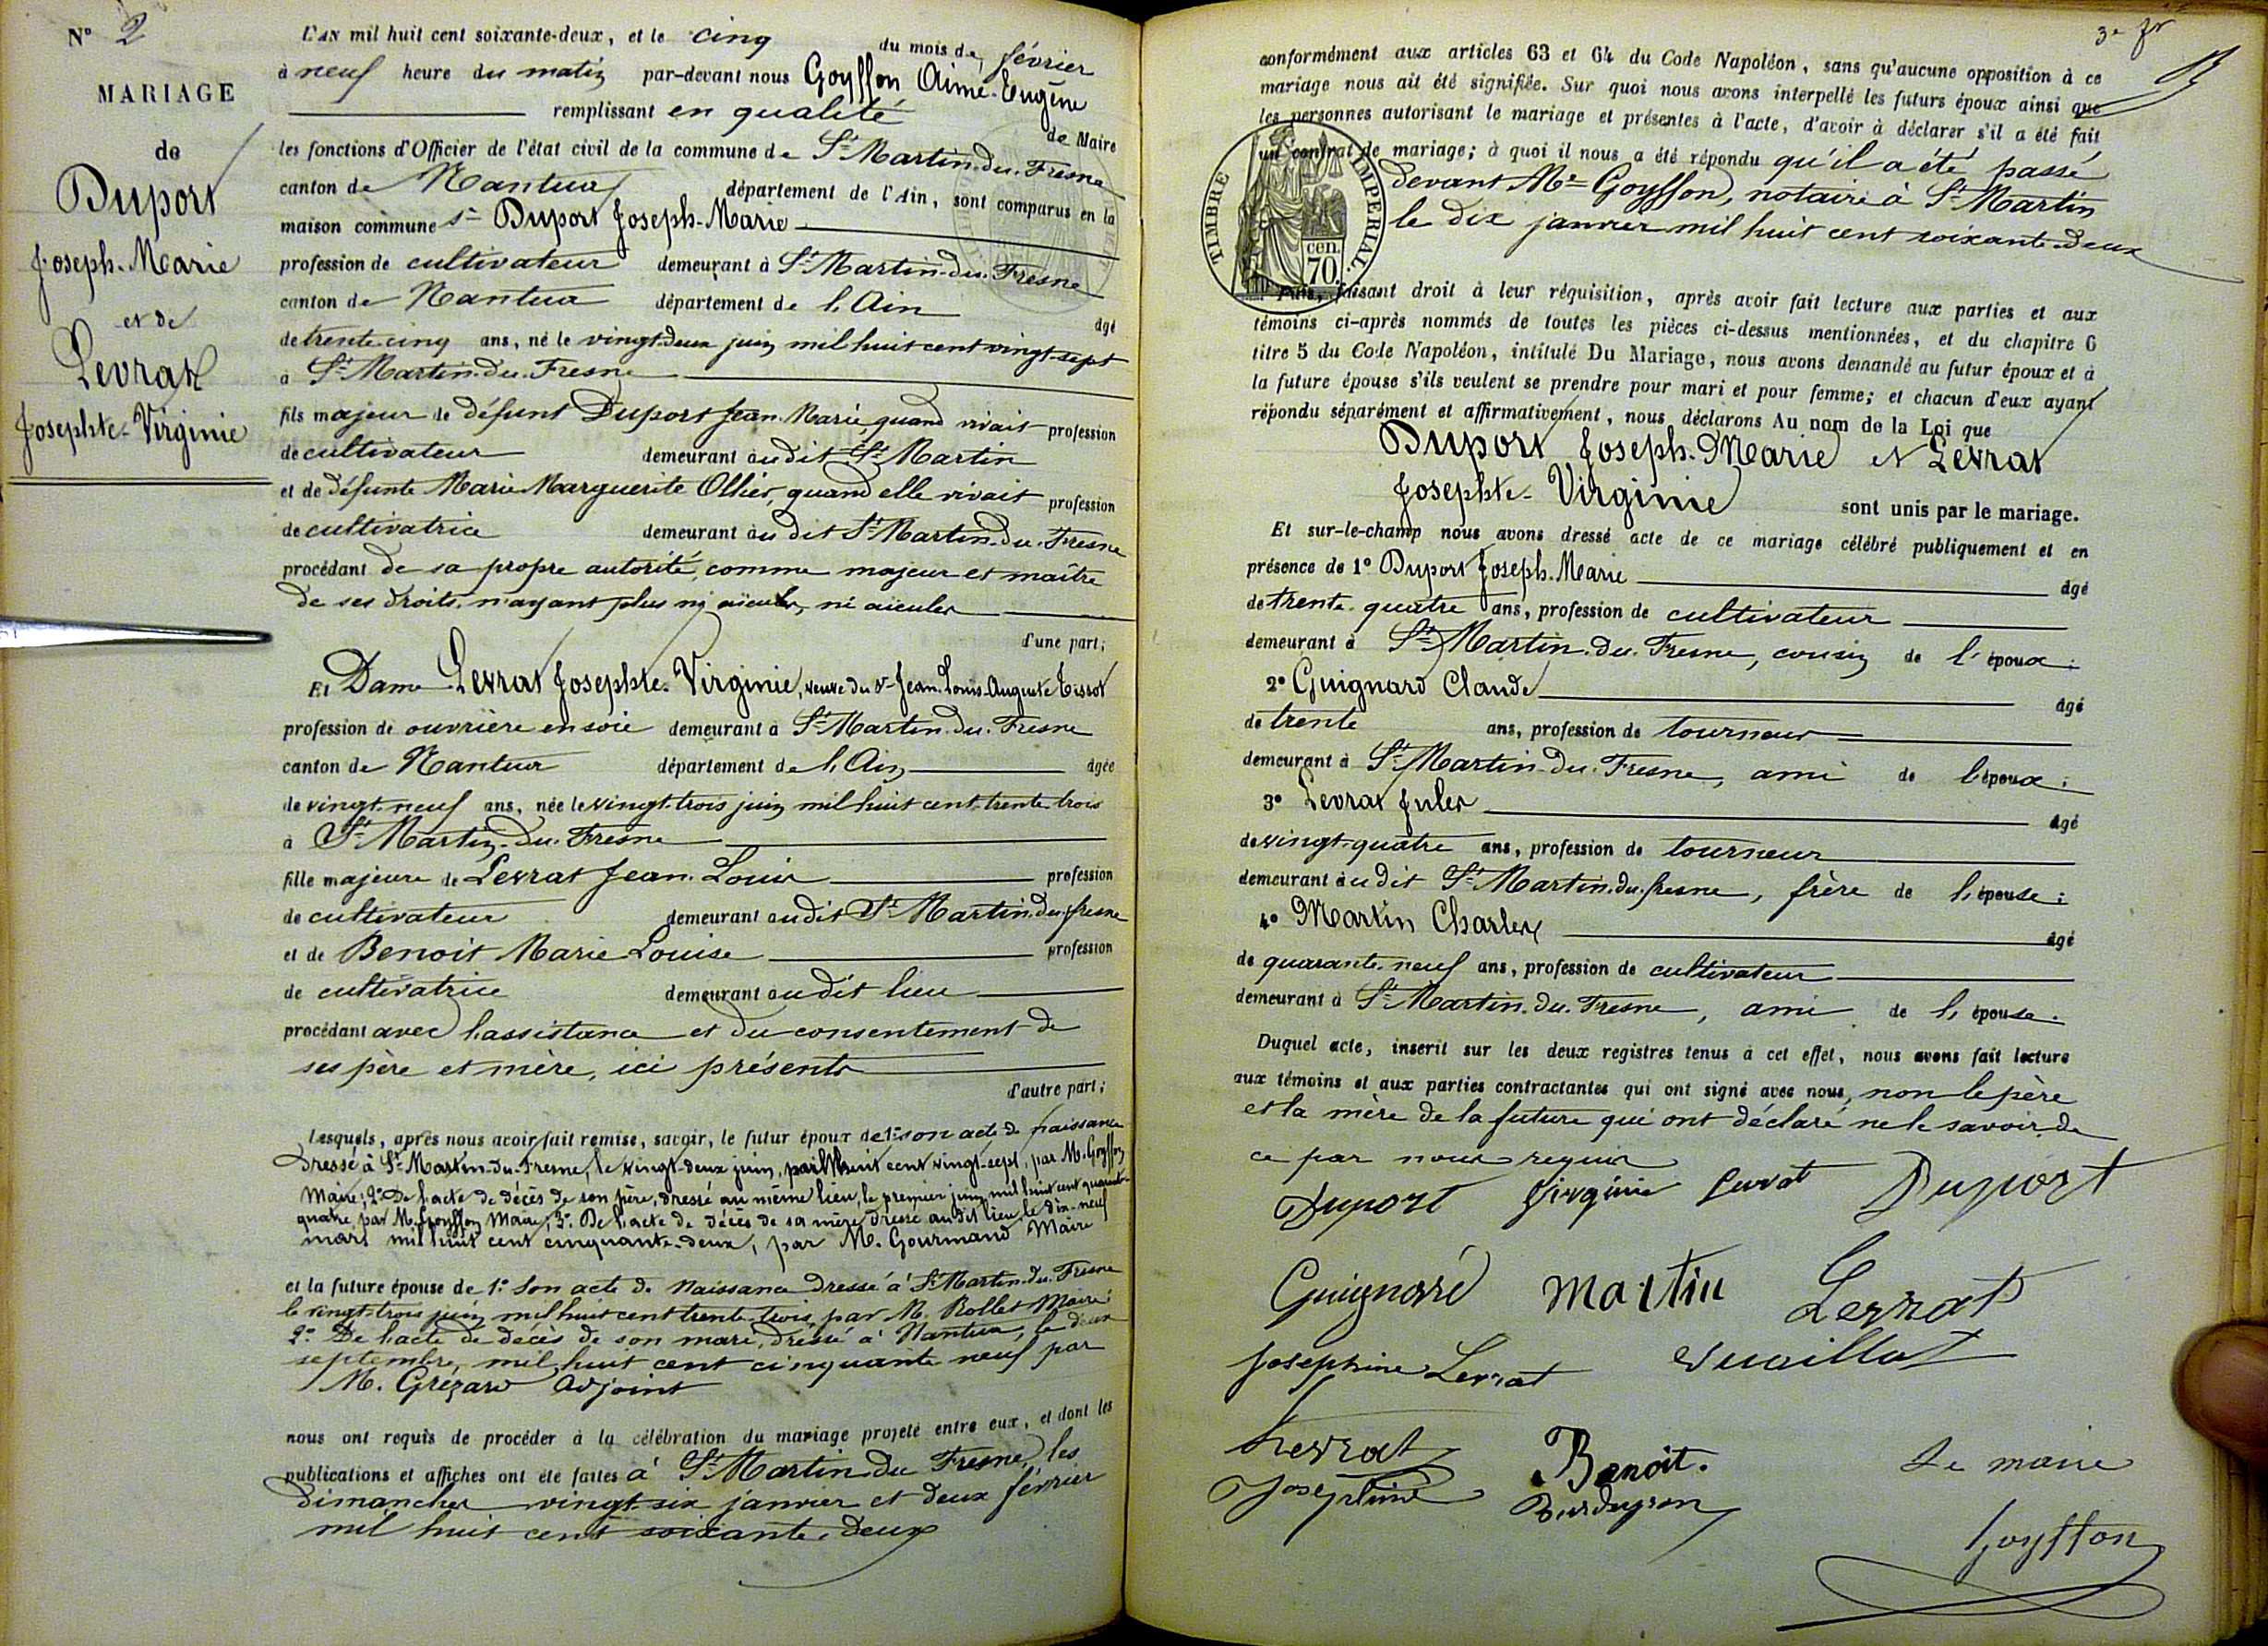 N° 2
MARIAGE
de
Duport
Joseph-Marie
et de
Levrat
Josephte-Virginie
L'AN mil huit cent soixante-deux, et le cinq du mois de février
à neuf heure du matin par-devant nous Goyffon Aimé-Eugène
remplissant en qualité de Maire
les fonctions d'Officier de l'état civil de la commune de St Martin-du-Fresne
canton de Nantua département de l'Ain, sont comparus en la
maison commune sr Duport Joseph-Marie
profession de cultivateur demeurant à St Martin-du-Fresne
canton de Nantua département de l'Ain âgé
de trente-cinq ans, né le vingt-deux juin mil huit cent vingt-sept
à St Martin-du-Fresne
fils majeur de défunt Duport Jean-Marie, quand vivait profession
de cultivateur demeurant au dit St Martin
et de défunte Marie Marguerite Ollier, quand elle vivait profession
de cultivatrice demeurant au dit St Martin-du-Fresne
procédant de sa propre autorité, comme majeur et maître
de ses droits, n'ayant plus ni aïeules, ni aïeules
d'une part;
Et Dame Levrat Josephte-Virginie, veuve du sr Jean-Louis-Auguste Tissot
profession de ouvrière en soie demeurant à St Martin-du-Fresne
canton de Nantua département de l'Ain âgée
de vingt-neuf ans, née le vingt-trois juin mil huit cent trente-trois
à St Martin-du-Fresne
fille majeure de Levrat Jean-Louis profession
de cultivateur demeurant au dit St Martin-du-fresne
et de Benoit Marie-Louise profession
de cultivatrice demeurant au dit lieu
procédant avec l'assistance et du consentement de
ses père et mère, ici présents
d'autre part;
Lesquels, après nous avoir fait remise, savoir, le futur époux de 1° son acte de naissance
dressé à St Martin-du-Fresne, le vingt-deux juin, mil huit cent vingt-sept, par M. Goyffon
Maire; 2° De l'acte de décès de son père, dressé au même lieu, le premier juin mil huit cent quarante-
quatre, par M. Goyffon Maire; 3° De l'acte de décès de sa mère dressé au dit lieu, le dix-neuf
mars mil huit cent cinquante-deux, par M. Gourmand Maire
et la future épouse de 1° Son acte de Naissance dressé à St Martin-du-Fresne
le vingt-trois juin mil huit cent trente-trois, par M. Rollet Maire;
2° De l'acte de décès de son mari, dressé à Nantua, le deux
septembre, mil huit cent cinquante neuf par
M. Grézard Adjoint
nous ont requis de procéder à la célébration du mariage projeté entre eux, et dont les
publications et affiches ont été faites à St Martin du Fresne, les
dimanches vingt-six janvier et deux février
mil huit cent soixante-deux
3e fr
conformément aux articles 63 et 64 du Code Napoléon, sans qu'aucune opposition à ce
mariage nous ait été signifiée. Sur quoi nous avons interpellé les futurs époux ainsi que
les personnes autorisant le mariage et présentes à l'acte, d'avoir à déclarer s'il a été fait
un contrat de mariage; à quoi il nous a été répondu qu'il a été passé
devant Me Goyffon, notaire à St Martin
le dix janvier mil huit cent soixante-deux
TIMBRE IMPERIAL.
cen. 70
Puis, faisant droit à leur réquisition, après avoir fait lecture aux parties et aux
témoins ci-après nommés de toutes les pièces ci-dessus mentionnées, et du chapitre 6
titre 5 du Code Napoléon, intitulé Du Mariage, nous avons demandé au futur époux et à
la future épouse s'ils veulent se prendre pour mari et pour femme; et chacun d'eux ayant
répondu séparément et affirmativement, nous déclarons Au nom de la Loi que
Duport Joseph-Marie et Levrat
Josephte-Virginie sont unis par le mariage.
Et sur-le-champ nous avons dressé acte de ce mariage célébré publiquement et en
présence de 1° Duport Joseph-Marie âgé
de trente-quatre ans, profession de cultivateur
demeurant à St Martin-du-Fresne, cousin de l'époux;
2° Guignard Claude âgé
de trente ans, profession de tourneur
demeurant à St Martin-du-Fresne, ami de l'époux;
3° Levrat Jules âgé
de vingt-quatre ans, profession de tourneur
demeurant au dit St Martin-du-fresne, frère de l'épouse;
4° Martin Charles âgé
de quarante-neuf ans, profession de cultivateur
demeurant à St Martin-du-Fresne, ami de l'épouse.
Duquel acte, inscrit sur les deux registres tenus à cet effet, nous avons fait lecture
aux témoins et aux parties contractantes qui ont signé avec nous, non le père
et la mère de la future qui ont déclaré ne le savoir de
ce par nous requis
Duport Virginie Levrat Duport
Guignard Martin Levrat
Josephine Levrat Vuaillat
Levrat Benoit. Le maire
Joséphine
Goyffon